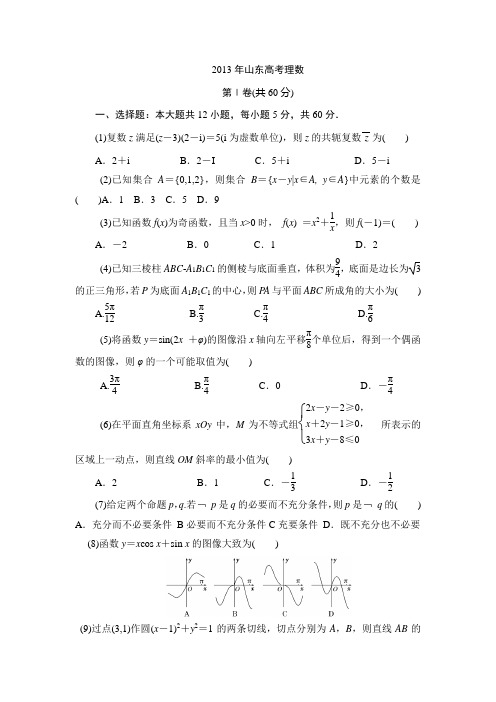 2013 年山东高考理数
第Ⅰ卷(共 60 分)
一、选择题：本大题共 12 小题，每小题 5 分，共 60 分．
(1)复数 z 满足(z－3)(2－i)＝5(i 为虚数单位)，则 z 的共轭复数 z̄ 为( )
A．2＋i B．2－I C．5＋i D．5－i
(2)已知集合 A＝{0,1,2}，则集合 B＝{x－y|x∈A, y∈A}中元素的个数是
( )A．1 B．3 C．5 D．9
(3)已知函数 f(x)为奇函数，且当 x>0 时， f(x) ＝x²＋1/x，则 f(－1)＝( )
A．－2 B．0 C．1 D．2
(4)已知三棱柱 ABC­A₁B₁C₁ 的侧棱与底面垂直，体积为9/4，底面是边长为√3
的正三角形，若 P 为底面 A₁B₁C₁ 的中心，则 PA 与平面 ABC 所成角的大小为( )
A.5π/12 B.π/3 C.π/4 D.π/6
(5)将函数 y＝sin(2x ＋φ)的图像沿 x 轴向左平移π/8个单位后，得到一个偶函
数的图像，则 φ 的一个可能取值为( )
A.3π/4 B.π/4 C．0 D．－π/4
(6)在平面直角坐标系 xOy 中，M 为不等式组{2x－y－2≥0，
x＋2y－1≥0，
3x＋y－8≤0
所表示的
区域上一动点，则直线 OM 斜率的最小值为( )
A．2 B．1 C．－1/3 D．－1/2
(7)给定两个命题 p，q.若﹁ p 是 q 的必要而不充分条件，则 p 是﹁ q 的( )
A．充分而不必要条件 B 必要而不充分条件 C 充要条件 D．既不充分也不必要
(8)函数 y＝xcos x＋sin x 的图像大致为( )
y π O x y π O x y π O x y π O x
A B C D
(9)过点(3,1)作圆(x－1)²＋y²＝1 的两条切线，切点分别为 A，B，则直线 AB 的